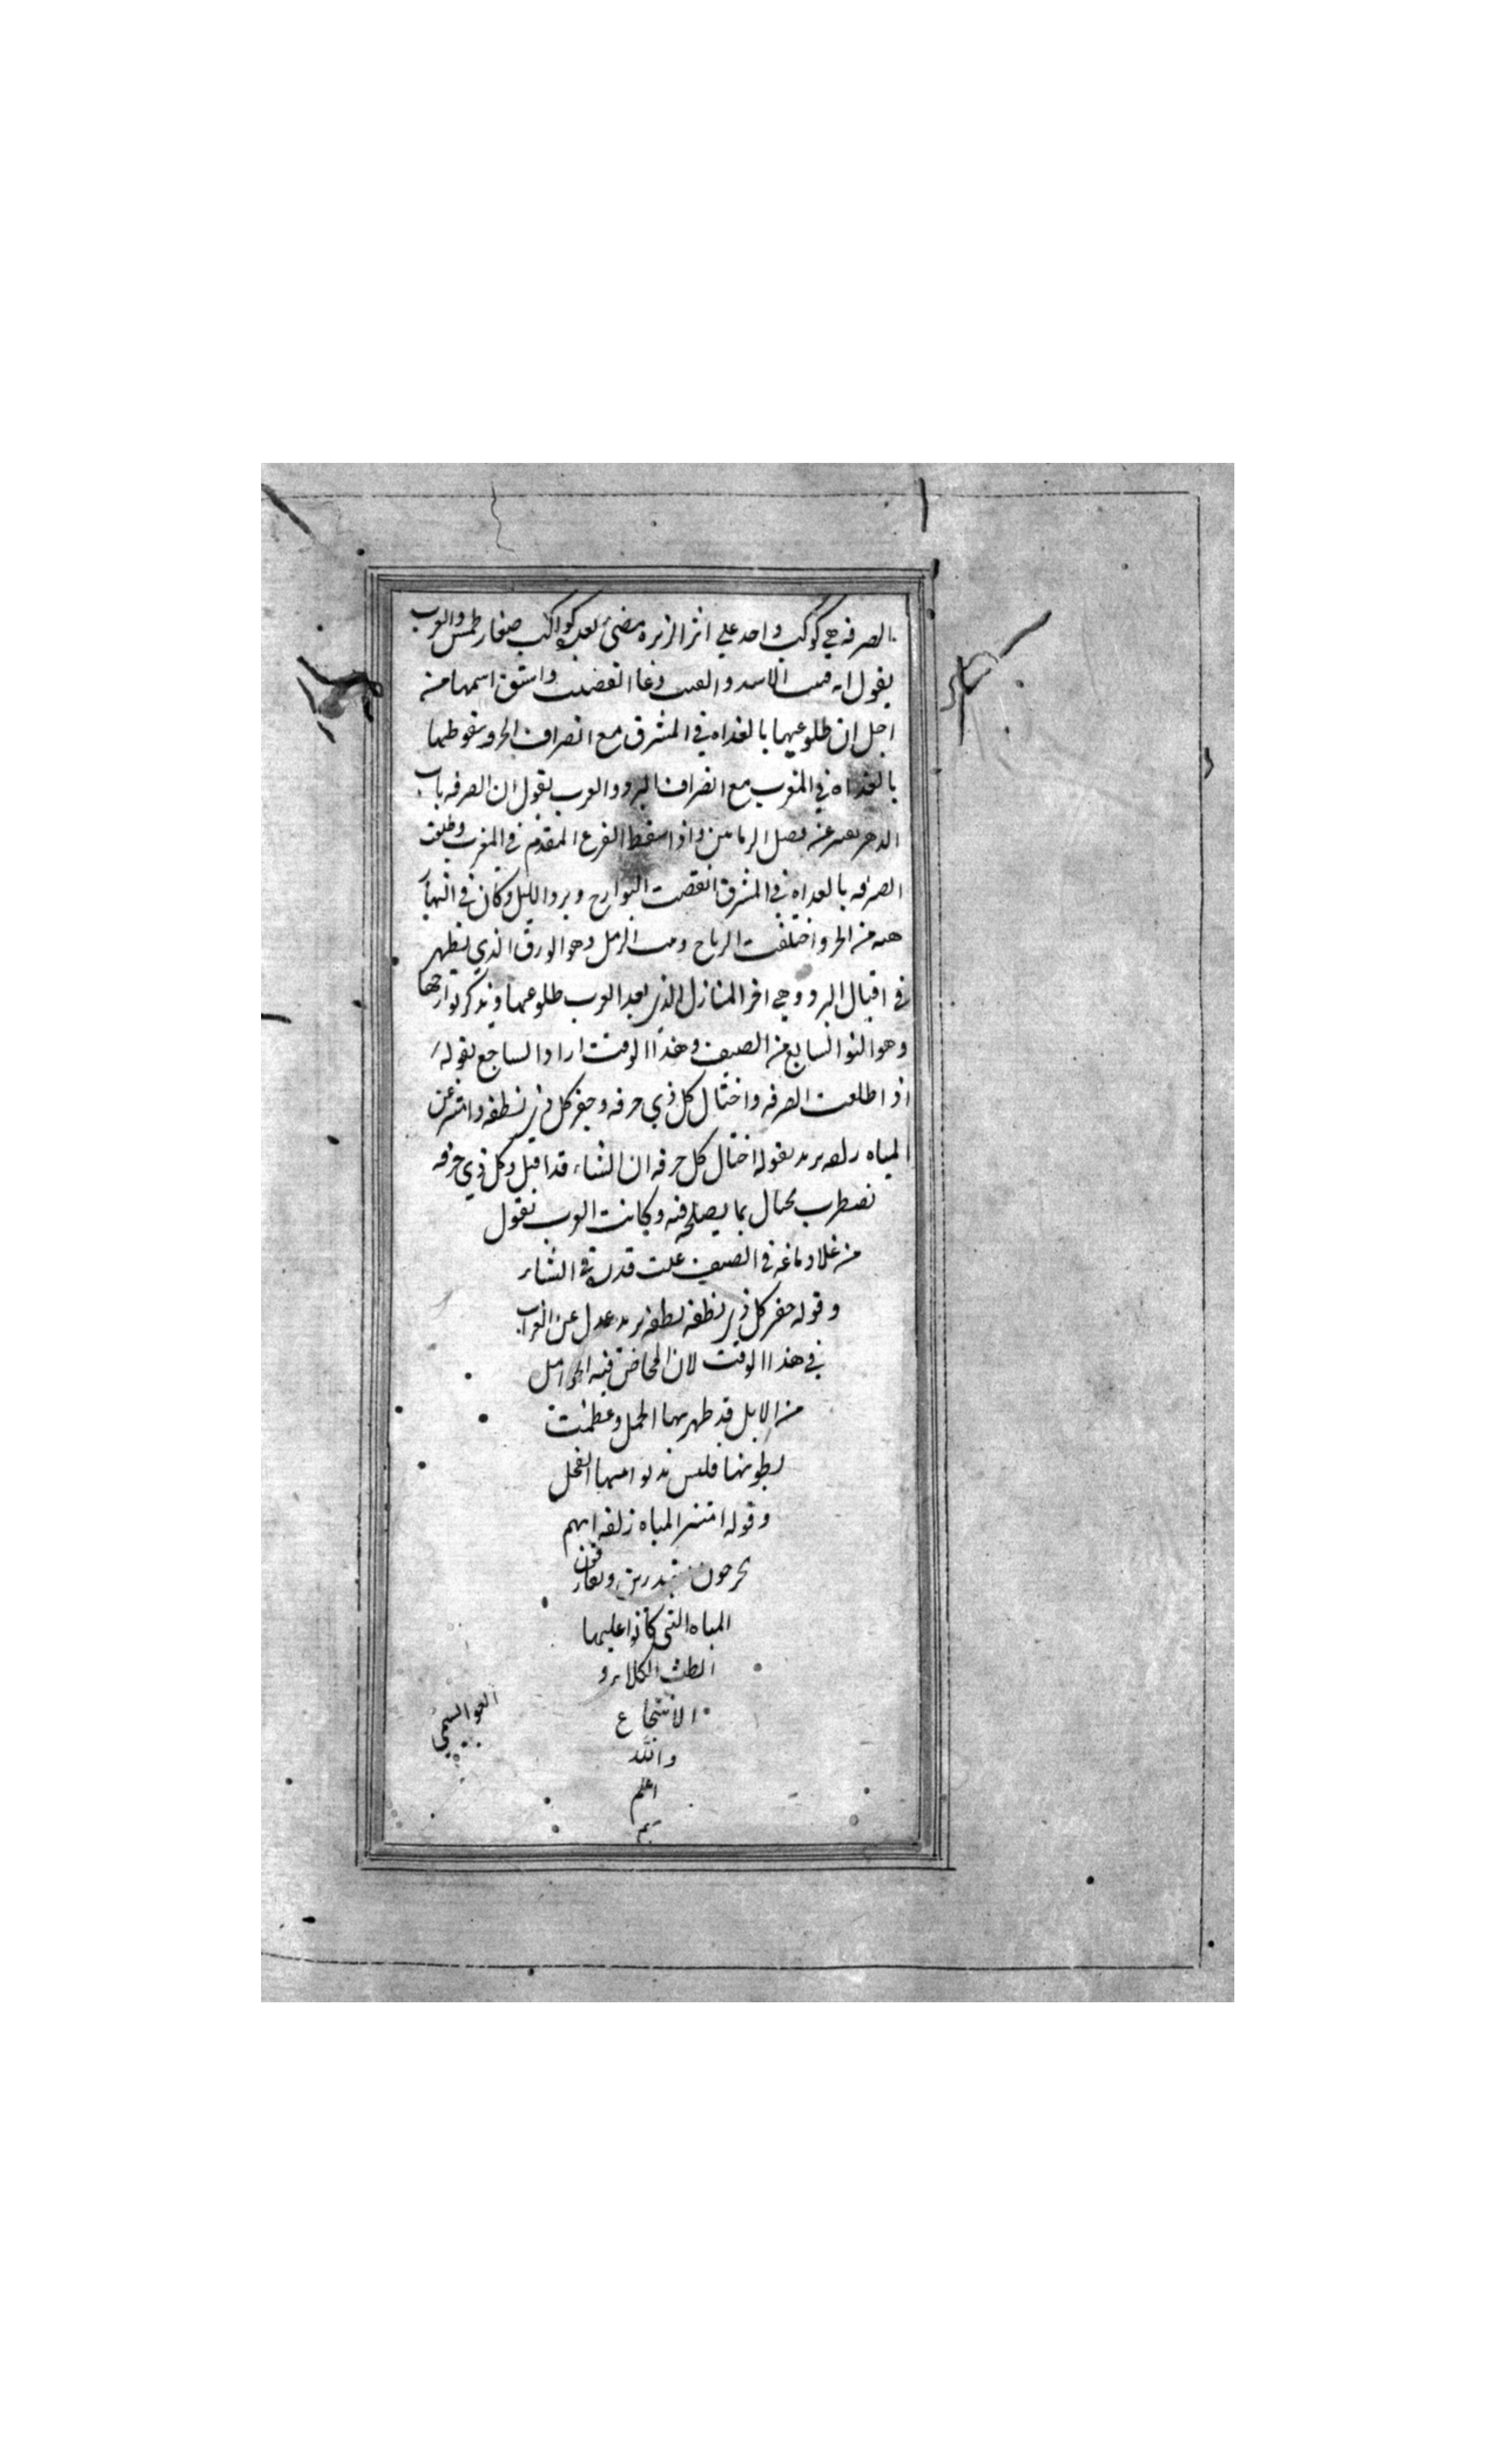 الصرفه هي كوكب واحد علي اثر الزبرة مضيء بعده كواكب صغار طمس والعرب
يقول انه قنب الاسد والقنب وعا القضيب واشتق اسمها من
اجل ان طلوعيها بالغداه في المشرق مع انصراف الحر وسقوطها
بالغداه في المغرب مع انصراف البرد والعرب يقول ان الصرفه باب
الدهر فصل الزمانين واذا سقط الفرع المقدم في المغرب وطلعت
الصرفه بالغداه في المشرق انقضت البوارح وبرد الليل وكان في النهار
من الحر واختلفت الرياح الرمل وهو الورق الذي يظهر
في اقبال البرد وهي اخر المنازل الذي بعد العرب طلوعها ويذكر بوارحها
وهو النو السابع من الصيف وهذا الوقت اراد الساجع بقوله
اذا طلعت الصرفه واختال كل ذي حرفه وجفر كل ذي نطفه وامتيز عن
المياه زلفه يريد بقوله اختال كل حرفه ان الشتاء قد اقبل وكل ذي حرفه
يضطرب بما يصلح فيه وكانت العرب تقول
من غلا دماغه في الصيف غلت قدره في الشتاء
وقوله جفر كل ذي نطفه نطفه يريد عدل عن الضراب
في هذا الوقت لان المخاض فيه الحوامل
من الابل قد ظهر بها الحمل وعظمت
بطونها فليس يدنوا منها الفحل
وقوله امتيز المياه زلفه انهم
يخرجون متبدرين ويفارقون
المياه التي كانوا عليها
لطلب الكلاء و
الانتجاع
والله
اعلم
تم
العوا